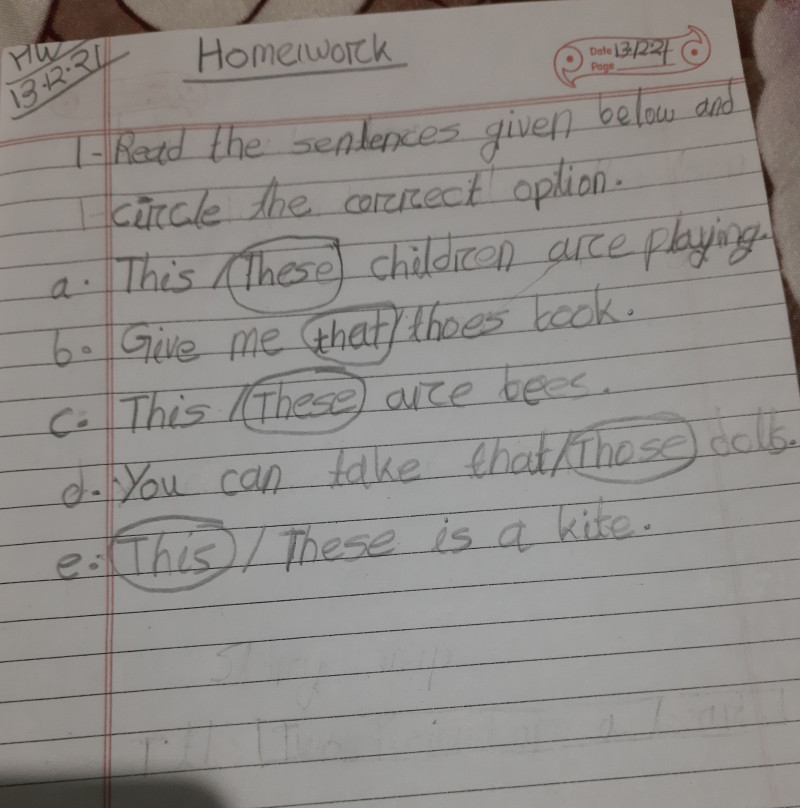 HW
13.12.21
Homework
Date 13.12.21
Page
1- Read the sentences given below and
circle the correct option.
a. This / These children are playing.
b. Give me that/thoes book.
c. This / These are bees.
d. You can take that/Those dolls.
e. This / These is a kite.